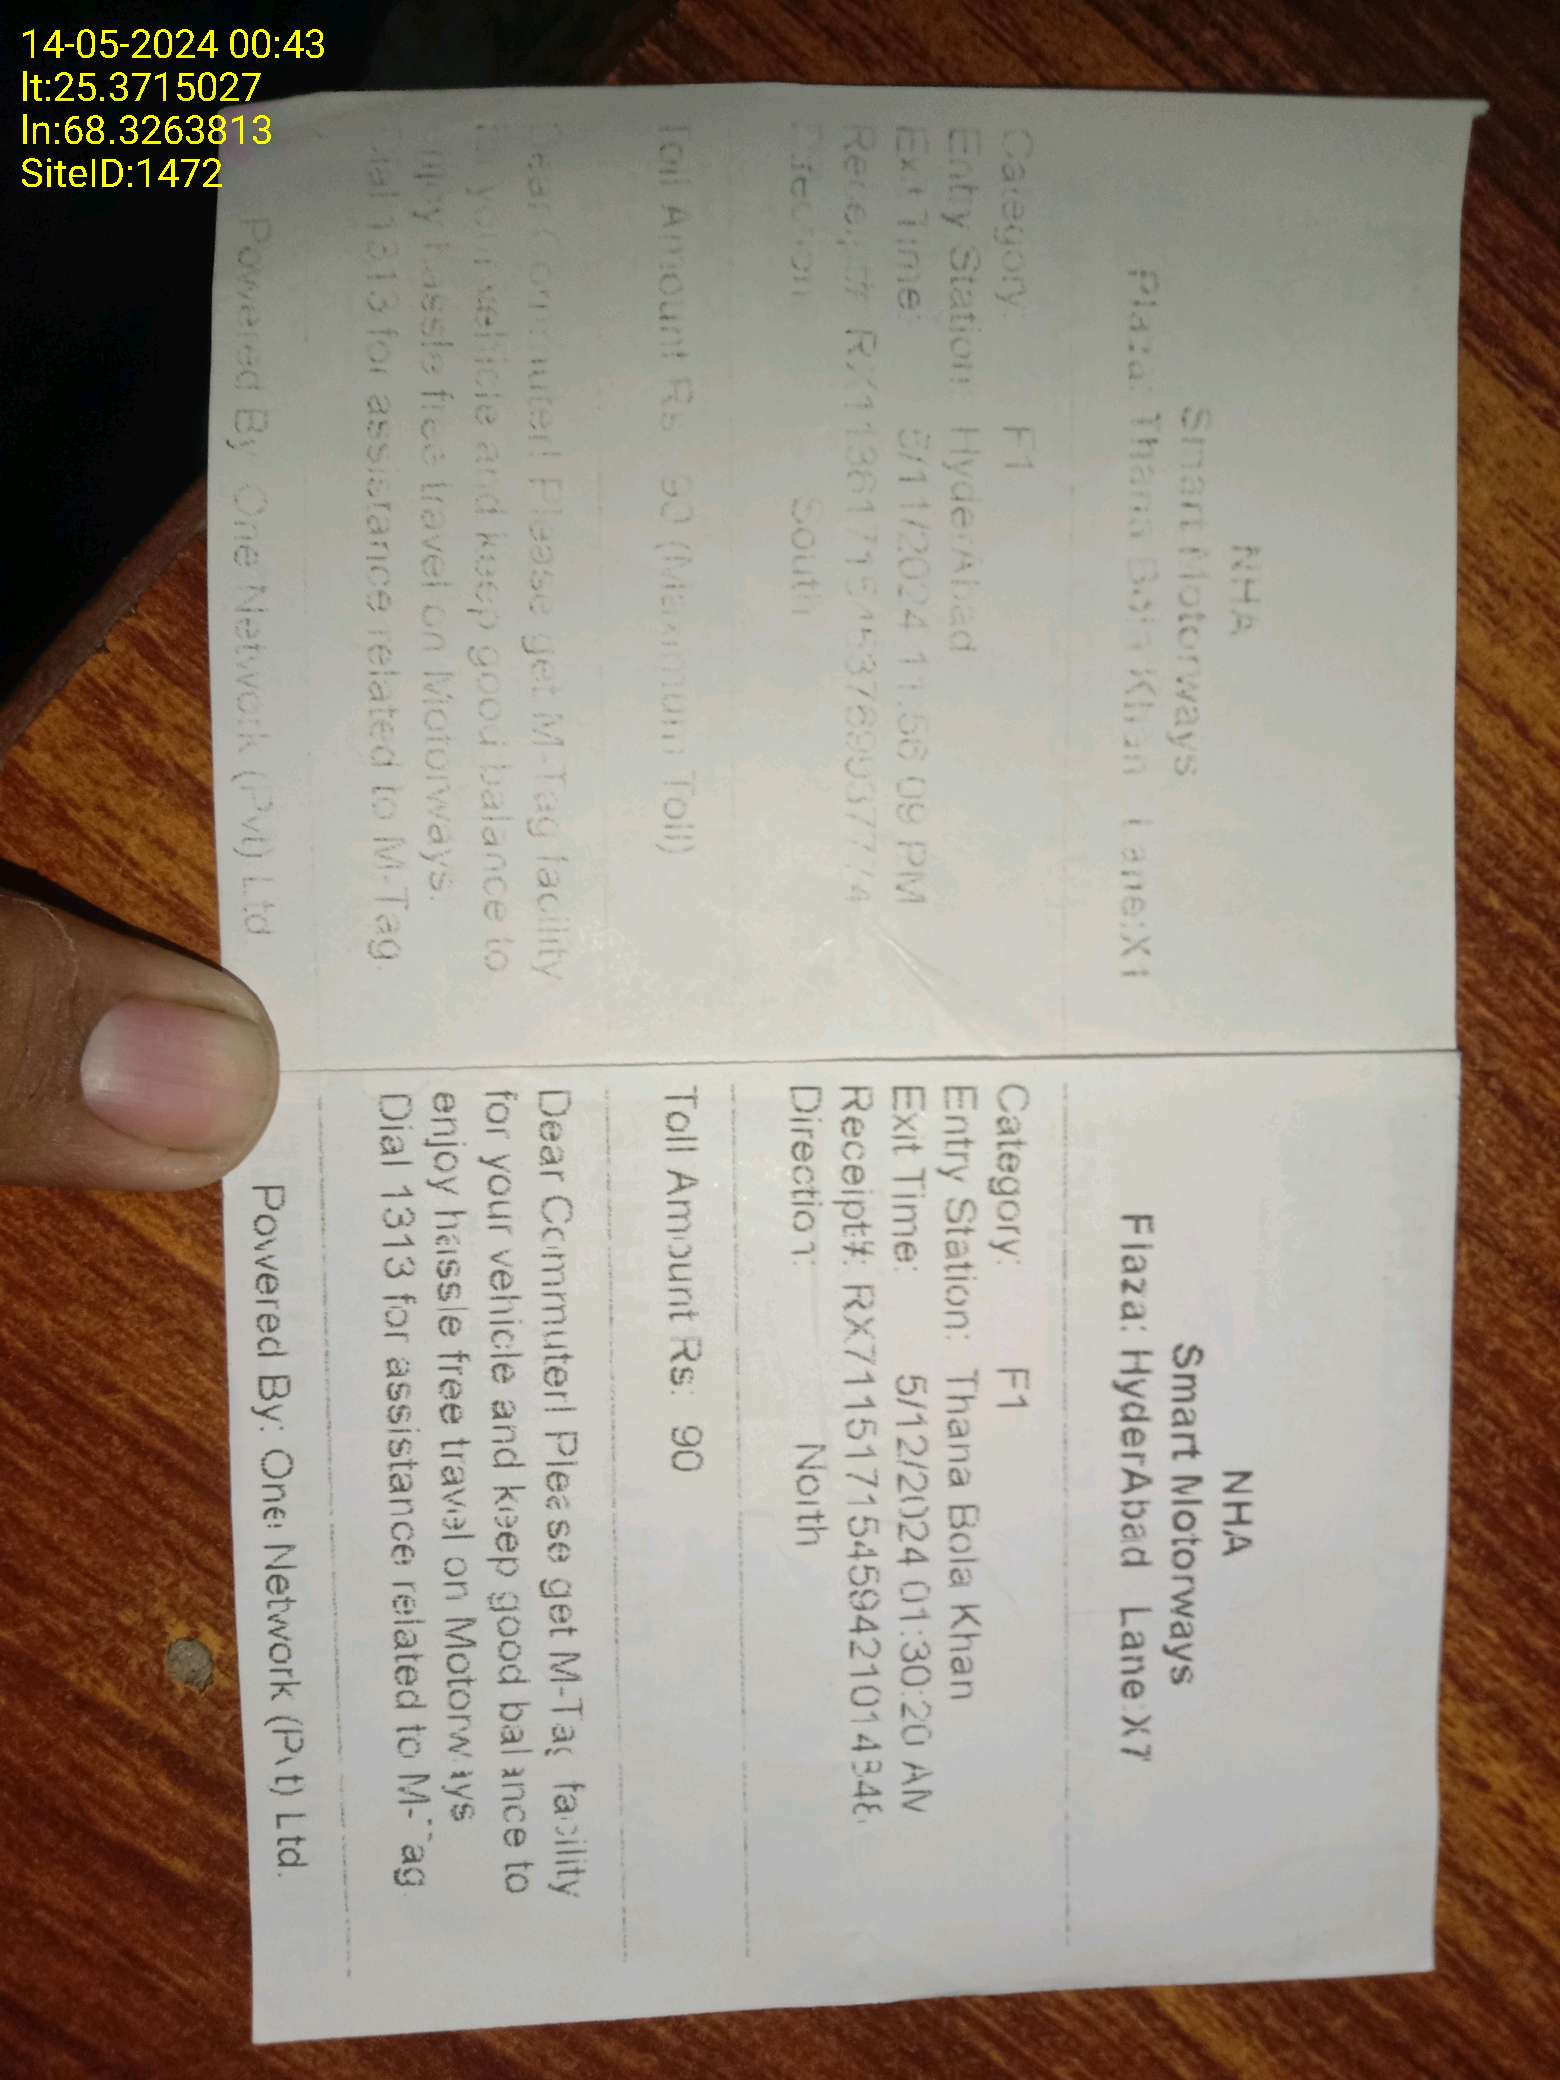 14-05-2024 00:43
lt:25.3715027
ln:68.3263813
SiteID:1472
NHA
Smart Motorways
Plaza: Thana Bola Khan Lane:X1
Category: F1
Entry Station: HyderAbad
Exit Time: 5/11/2024 11:56:09 PM
South
Toll Amount Rs: 90 (Maximum Toll)
Dear Commuter! Please get M-Tag facility
your vehicle and keep good balance to
hassle free travel on Motorways.
Dial 1313 for assistance related to M-Tag.
Powered By: One Network (Pvt) Ltd
NHA
Smart Motorways
Plaza: HyderAbad Lane:X7
Category: F1
Entry Station: Thana Bola Khan
Exit Time: 5/12/2024 01:30:20 AM
Receipt#:
Direction: North
Toll Amount Rs: 90
Dear Commuter! Please get M-Tag facility
for your vehicle and keep good balance to
enjoy hassle free travel on Motorways
Dial 1313 for assistance related to M-Tag.
Powered By: One Network (Pvt) Ltd.